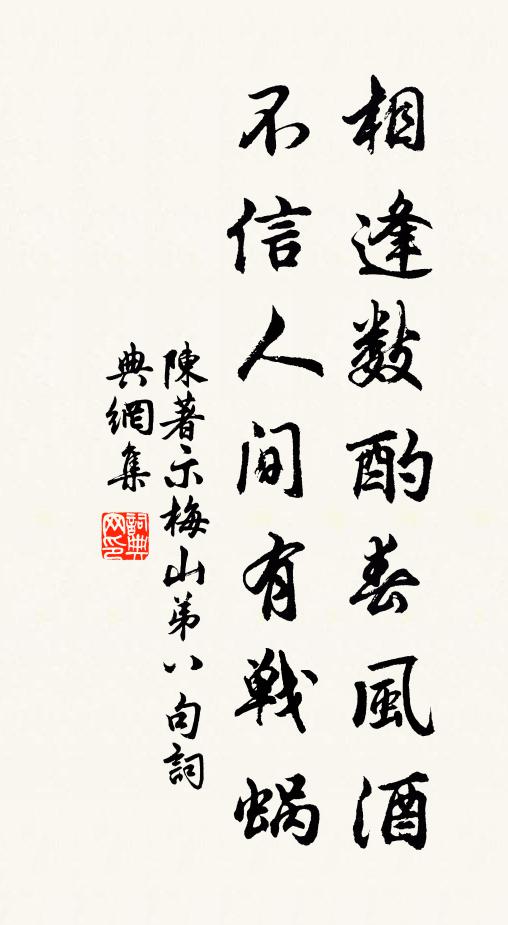 相逢数酌春風酒
不信人间有戦蜗
陳著示梅山弟八句詞
典網集
詞典网印